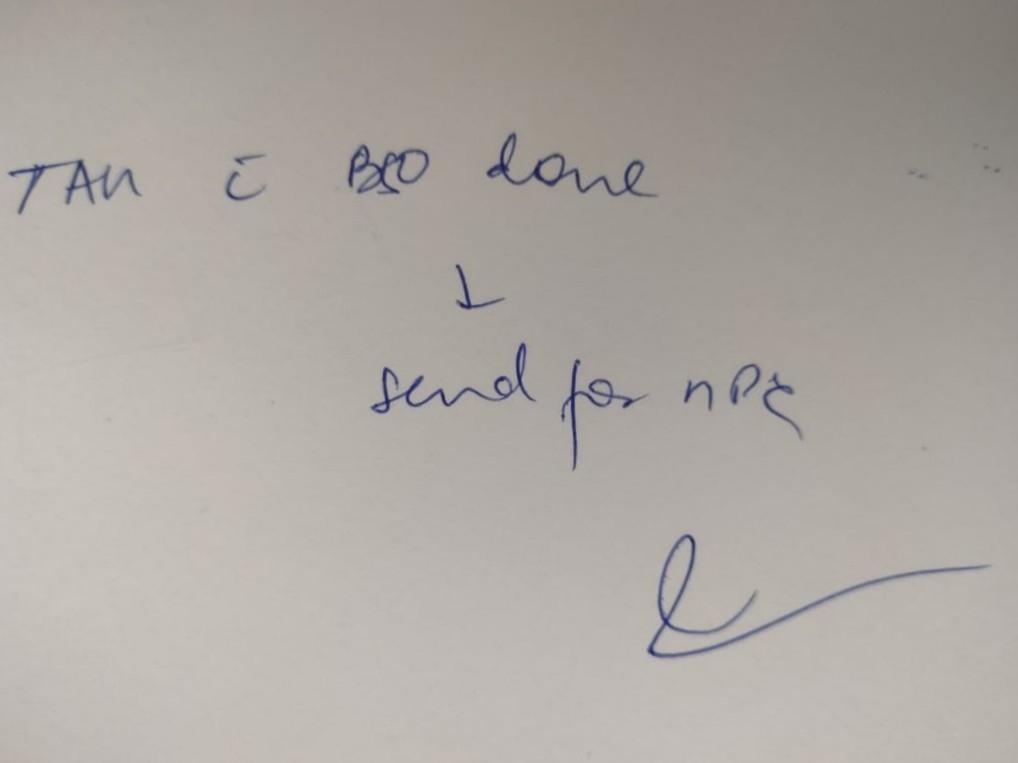 TAH c̄ BSO done
↓
send for HPE